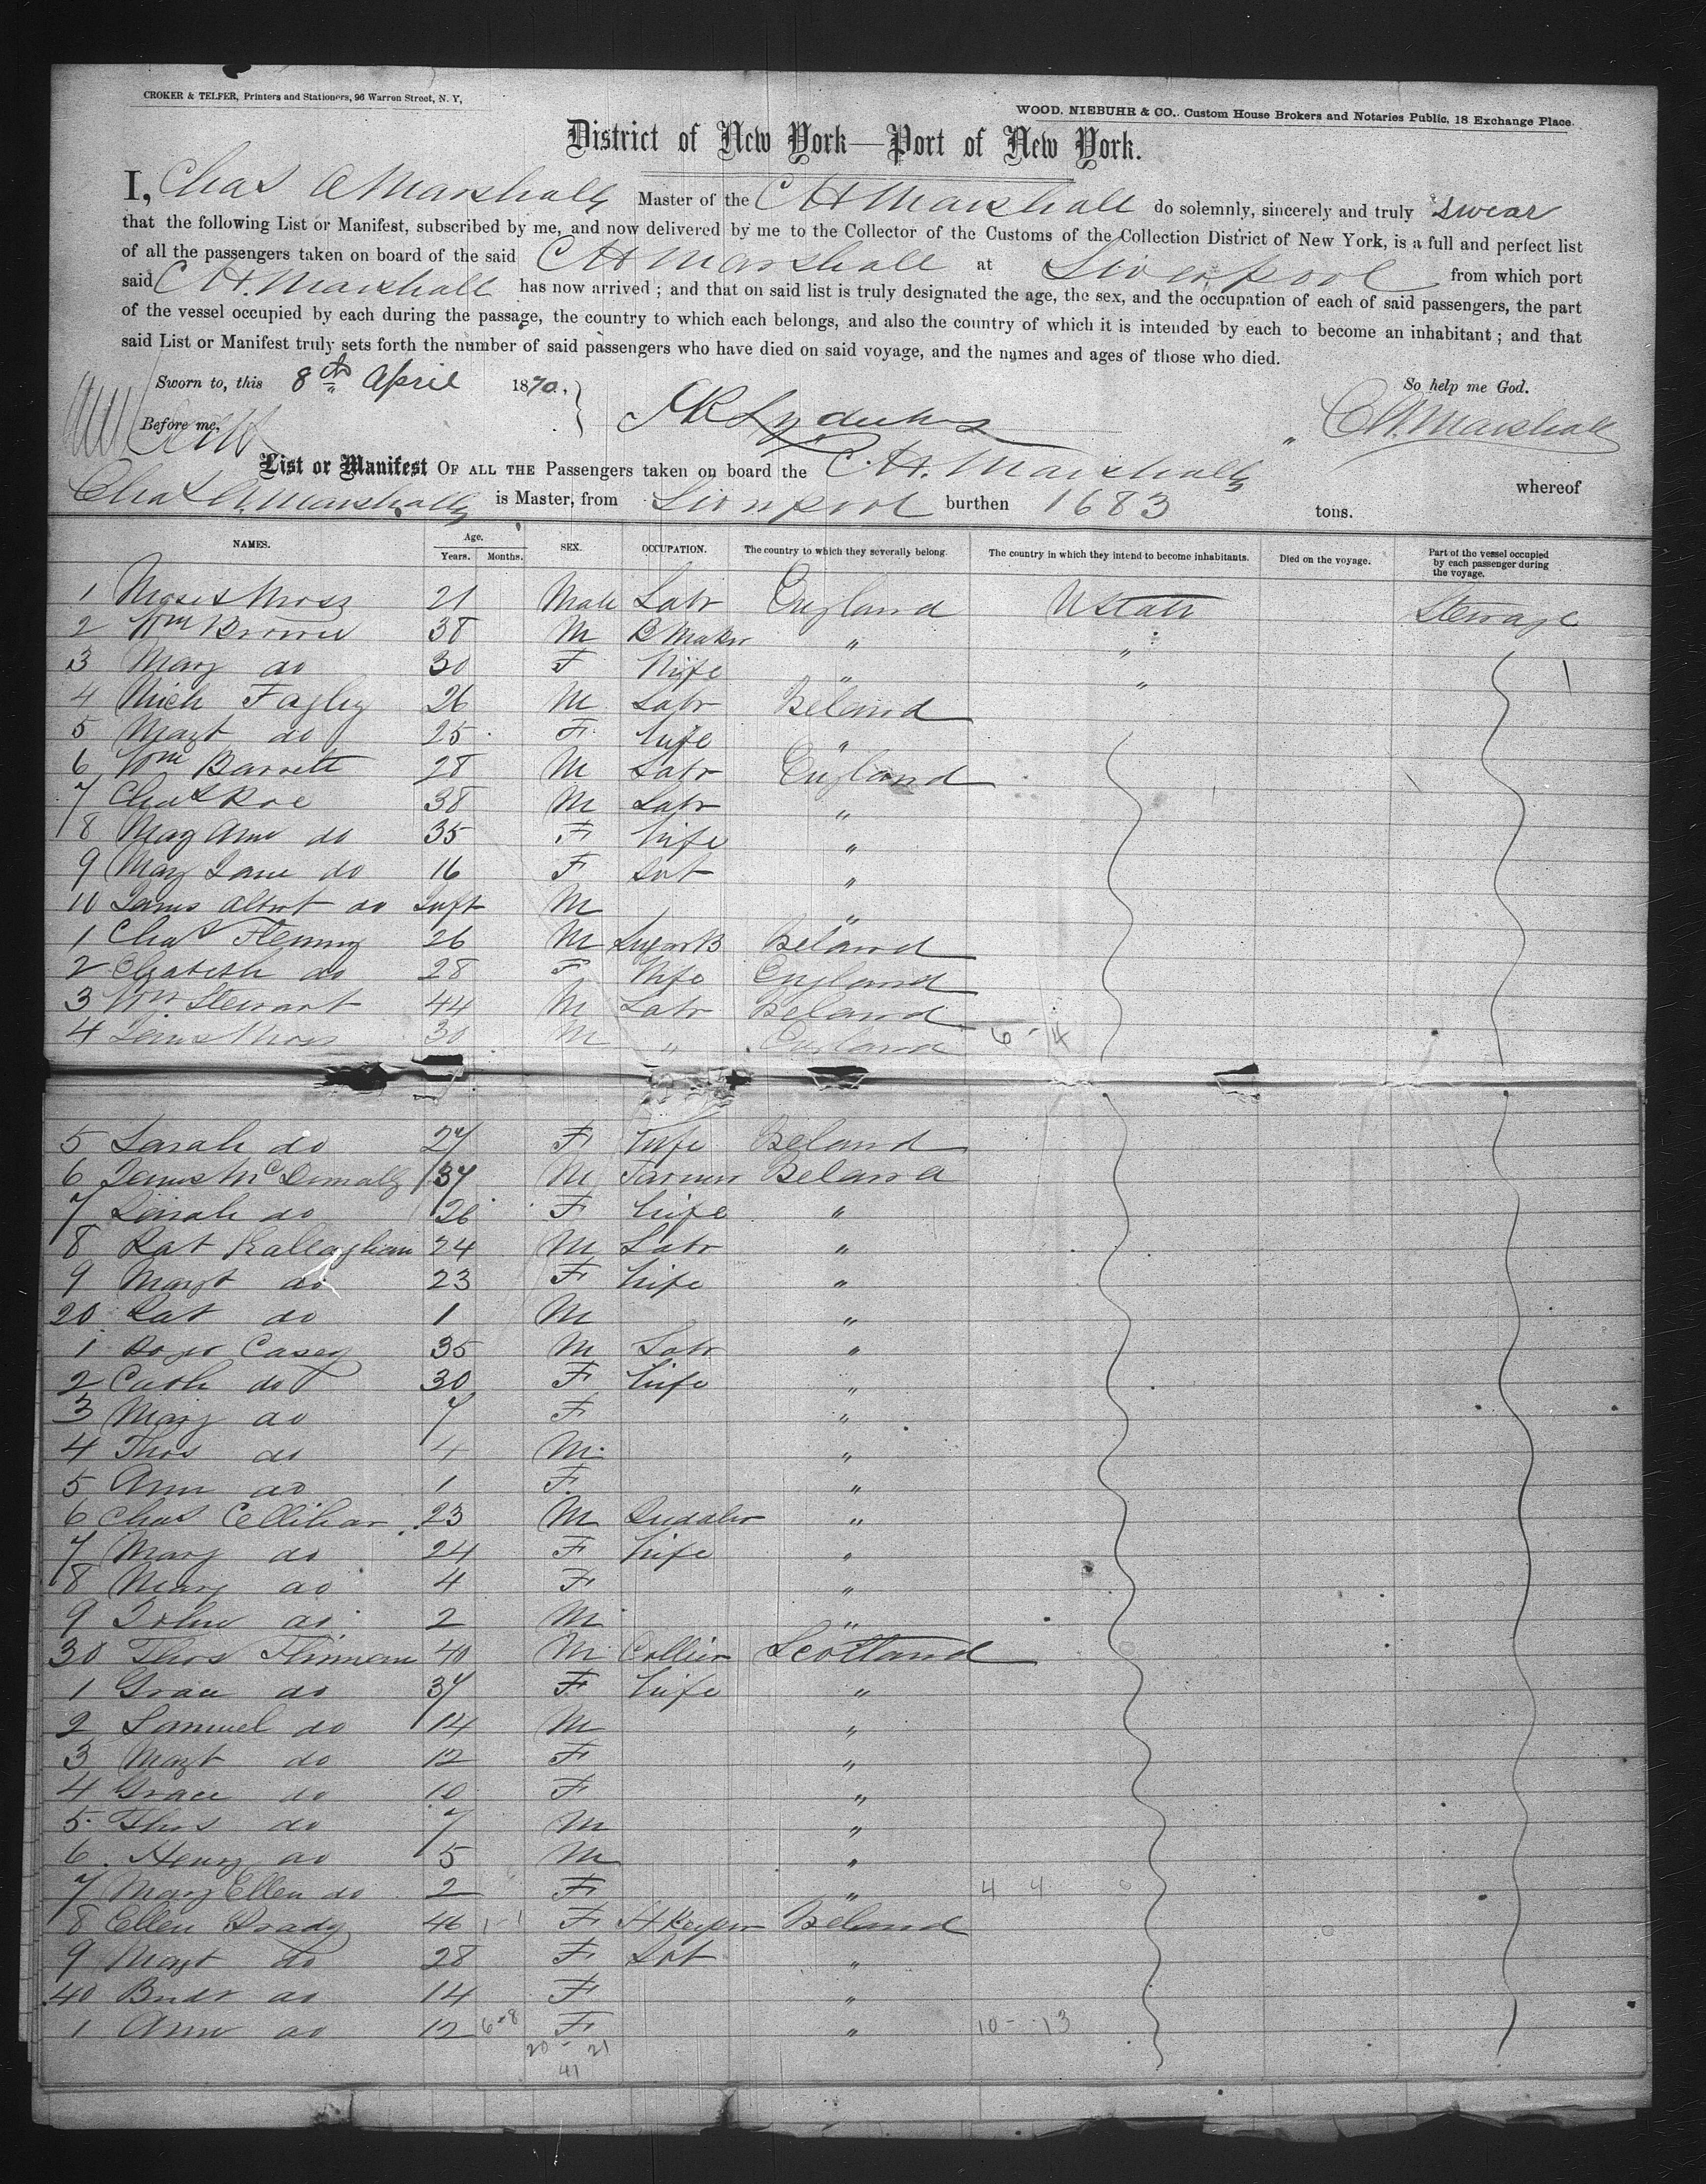 CROKER & TELFER, Printers and Stationers, 96 Warren Street, N. Y,
WOOD. NIEBUHR & CO.. Custom House Brokers and Notaries Public, 18 Exchange Place.
District of New York—Port of New York.
I, Chas A Marshall Master of the C H Marshall do solemnly, sincerely and truly swear
that the following List or Manifest, subscribed by me, and now delivered by me to the Collector of the Customs of the Collection District of New York, is a full and perfect list
of all the passengers taken on board of the said C H Marshall at Liverpool from which port
said C H. Marshall has now arrived; and that on said list is truly designated the age, the sex, and the occupation of each of said passengers, the part
of the vessel occupied by each during the passage, the country to which each belongs, and also the country of which it is intended by each to become an inhabitant; and that
said List or Manifest truly sets forth the number of said passengers who have died on said voyage, and the names and ages of those who died.
Sworn to, this 8th April 1870. So help me God.
Before me, C. A. Marshall
List or Manifest OF ALL THE Passengers taken on board the C. H. Marshall whereof
Chas A. Marshall is Master, from Liverpool burthen 1683 tons.
NAMES. Age. Years. Months. SEX. OCCUPATION. The country to which they severally belong. The country in which they intend to become inhabitants. Died on the voyage. Part of the vessel occupied by each passenger during the voyage.
1 Moses Moss 21 Male Labr England U States Steerage
2 Wm Brown 38 M B Maker " "
3 Mary do 30 F Wife " "
4 Mich Fagley 26 M Labr Ireland
5 Margt do 25 F Wife "
6 Wm Barrett 28 M Labr England
7 Chas Roe 38 M Labr "
8 Mary Ann do 35 F Wife "
9 Mary Jane do 16 F Svt "
10 James Albert do Inft M "
1 Chas Fleming 26 M Sugar B Ireland
2 Elizabeth do 28 F Wife England
3 Wm Stewart 44 M Labr Ireland
4 Moss 30 M " England 6 - 4
5 Sarah do 27 F Wife Ireland
6 James Mc 37 M Farmer Ireland
7 Sarah do 26 F Wife "
8 Pat Kallaghan 24 M Labr "
9 Margt do 23 F Wife "
20 Pat do 1 M "
1 Casey 35 M Labr "
2 Cath do 30 F Wife "
3 Mary do 7 F "
4 Thos do 4 M "
5 Ann do 1 F "
6 Chas 23 M Pudaler "
7 Mary do 24 F Wife "
8 Mary do 4 F "
9 John do 2 M "
30 Thos 40 M Collier Scotland
1 Grace do 37 F Wife "
2 Samuel do 14 M "
3 Margt do 12 F "
4 Grace do 10 F "
5 Thos do 7 M "
6 Henry do 5 M "
7 Mary Ellen do 2 F " 4 4
8 Ellen Brady 46 1-1 F H Keeper Ireland
9 Margt do 28 F Svt "
40 Bridt do 14 F "
1 Ann do 12 6-8 F " 10 - 13
20 - 21
41